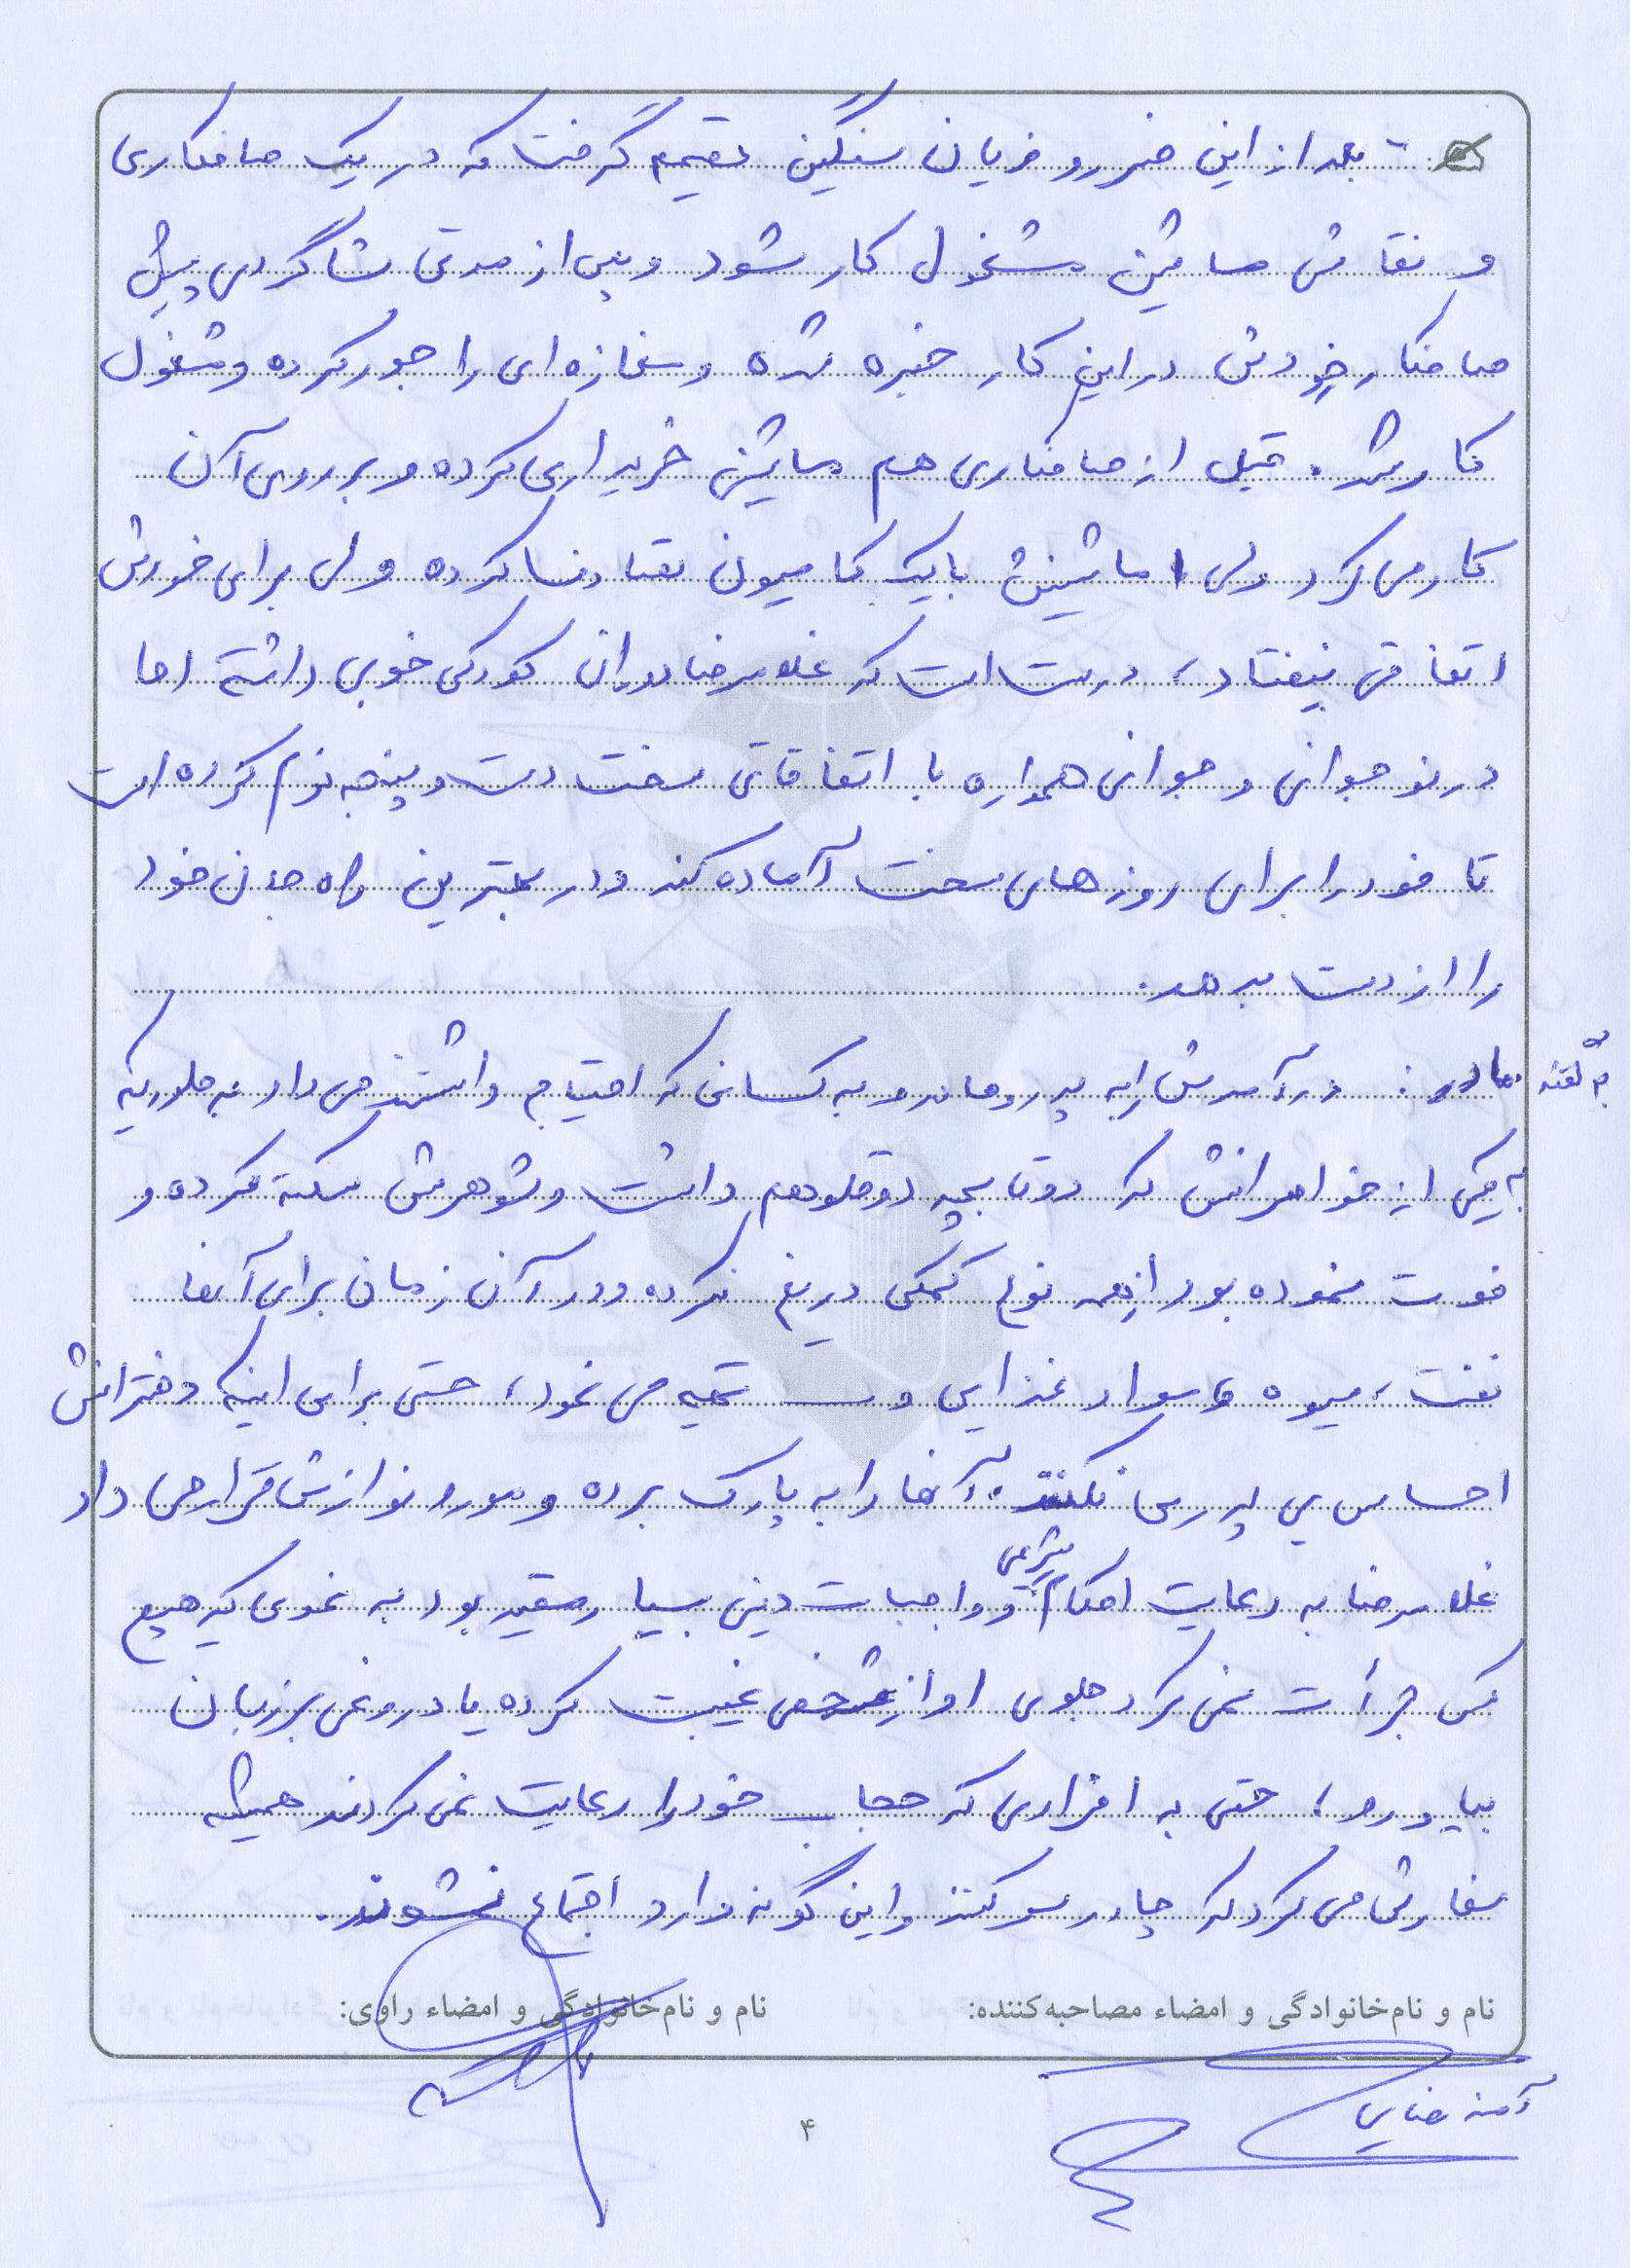 - بعد از این ضرر و ضریان سنگین تصمیم گرفت که در یک صافکاری
و نقاشی ماشین مشغول کار شود و پس از مدتی شاگردی پیش
صافکار خودش در این کار خبره شده و مغازه ای را جور کرده و مشغول
کار شد. قبل از صافکاری هم ماشین خریداری کرده و بر روی آن
کار می کرد ولی ماشینش با یک کامیون تصادف کرده ولی برای خودش
اتفاقی نیفتاد، درست است که غلامرضا دوران کودکی خوبی داشته اما
در نوجوانی و جوانی همواره با اتفاقاتی سخت دست و پنجه نرم کرده است
تا خود را برای روزهای سخت آماده کند و در بهترین راه جان خود
را از دست بدهد.
به گفته مادر: درآمدش را به پدر و مادر و به کسانی که احتیاج داشتند می داد به طوریکه
به یکی از خواهرانش که دو تا بچه دوقلو هم داشت و شوهرش سکته کرده و
فوت نموده بود از همه نوع کمکی دریغ نکرده و در آن زمان برای آنها
نفت، میوه و مواد غذایی و ... تهیه می نمود، حتی برای اینکه دخترانش
احساس بی پدری نکنند آنها را به پارک برده و مورد نوازش قرار می داد
غلامرضا به رعایت احکام شرعی و واجبات دینی بسیار مقید بود به نحوی که هیچ
کس جرأت نمی کرد جلوی او از شخصی غیبت کرده یا دروغی بر زبان
بیاورد، حتی به افرادی که حجاب خود را رعایت نمی کردند همیشه
سفارش می کرد که چادر سر کنند و این گونه وارد اجتماع نشوند.
نام و نام‌خانوادگی و امضاء مصاحبه‌کننده: نام و نام‌خانوادگی و امضاء راوی:
آمنه
۴